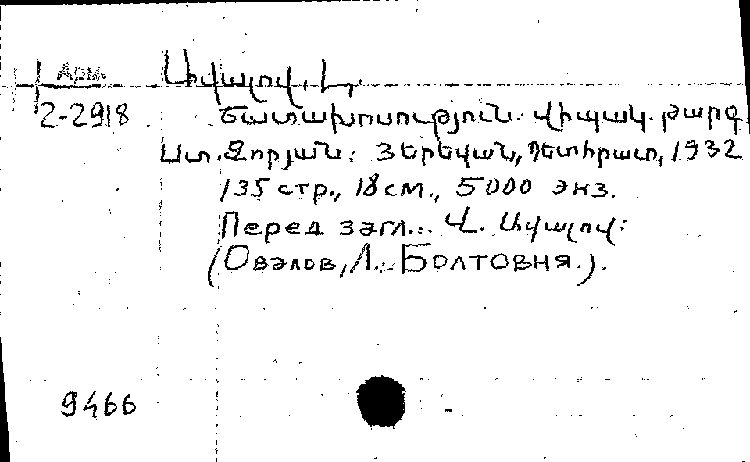 Арм.
Օվալով, Լ.
2-2918
Շատախոսություն. Վիպակ. թարգ.
Ստ. Զորյան: Յերեվան, Պետհրատ, 1932
135 стр., 18 см., 5000 экз.
Перед загл.: Վ. Օվալով:
(Овалов, Л.: Болтовня.).
9466